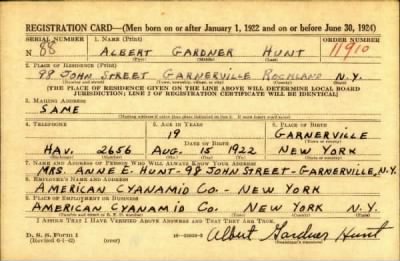 REGISTRATION CARD—(Men born on or after January 1, 1922 and on or before June 30, 1924)
SERIAL NUMBER 1. NAME (Print) ORDER NUMBER
N 88 ALBERT GARDNER HUNT 11910
(First) (Middle) (Last)
2. PLACE OF RESIDENCE (Print)
98 JOHN STREET GARNERVILLE ROCKLAND N.Y.
(Number and street) (Town, township, village, or city) (County) (State)
[THE PLACE OF RESIDENCE GIVEN ON THE LINE ABOVE WILL DETERMINE LOCAL BOARD
JURISDICTION; LINE 2 OF REGISTRATION CERTIFICATE WILL BE IDENTICAL]
3. MAILING ADDRESS
SAME
4. TELEPHONE 5. AGE IN YEARS 6. PLACE OF BIRTH
19 GARNERVILLE
DATE OF BIRTH
HAV. 2656 AUG. 15 1922 NEW YORK
7. NAME AND ADDRESS OF PERSON WHO WILL ALWAYS KNOW YOUR ADDRESS
MRS. ANNE E. HUNT - 98 JOHN STREET - GARNERVILLE, N.Y.
8. EMPLOYER'S NAME AND ADDRESS
AMERICAN CYANAMID CO. - NEW YORK
9. PLACE OF EMPLOYMENT OR BUSINESS
AMERICAN CYANAMID CO. NEW YORK N.Y.
I AFFIRM THAT I HAVE VERIFIED ABOVE ANSWERS AND THAT THEY ARE TRUE.
D. S. S. Form 1
(Revised 6-1-42) (over) Albert Gardner Hunt
(Registrant's signature)